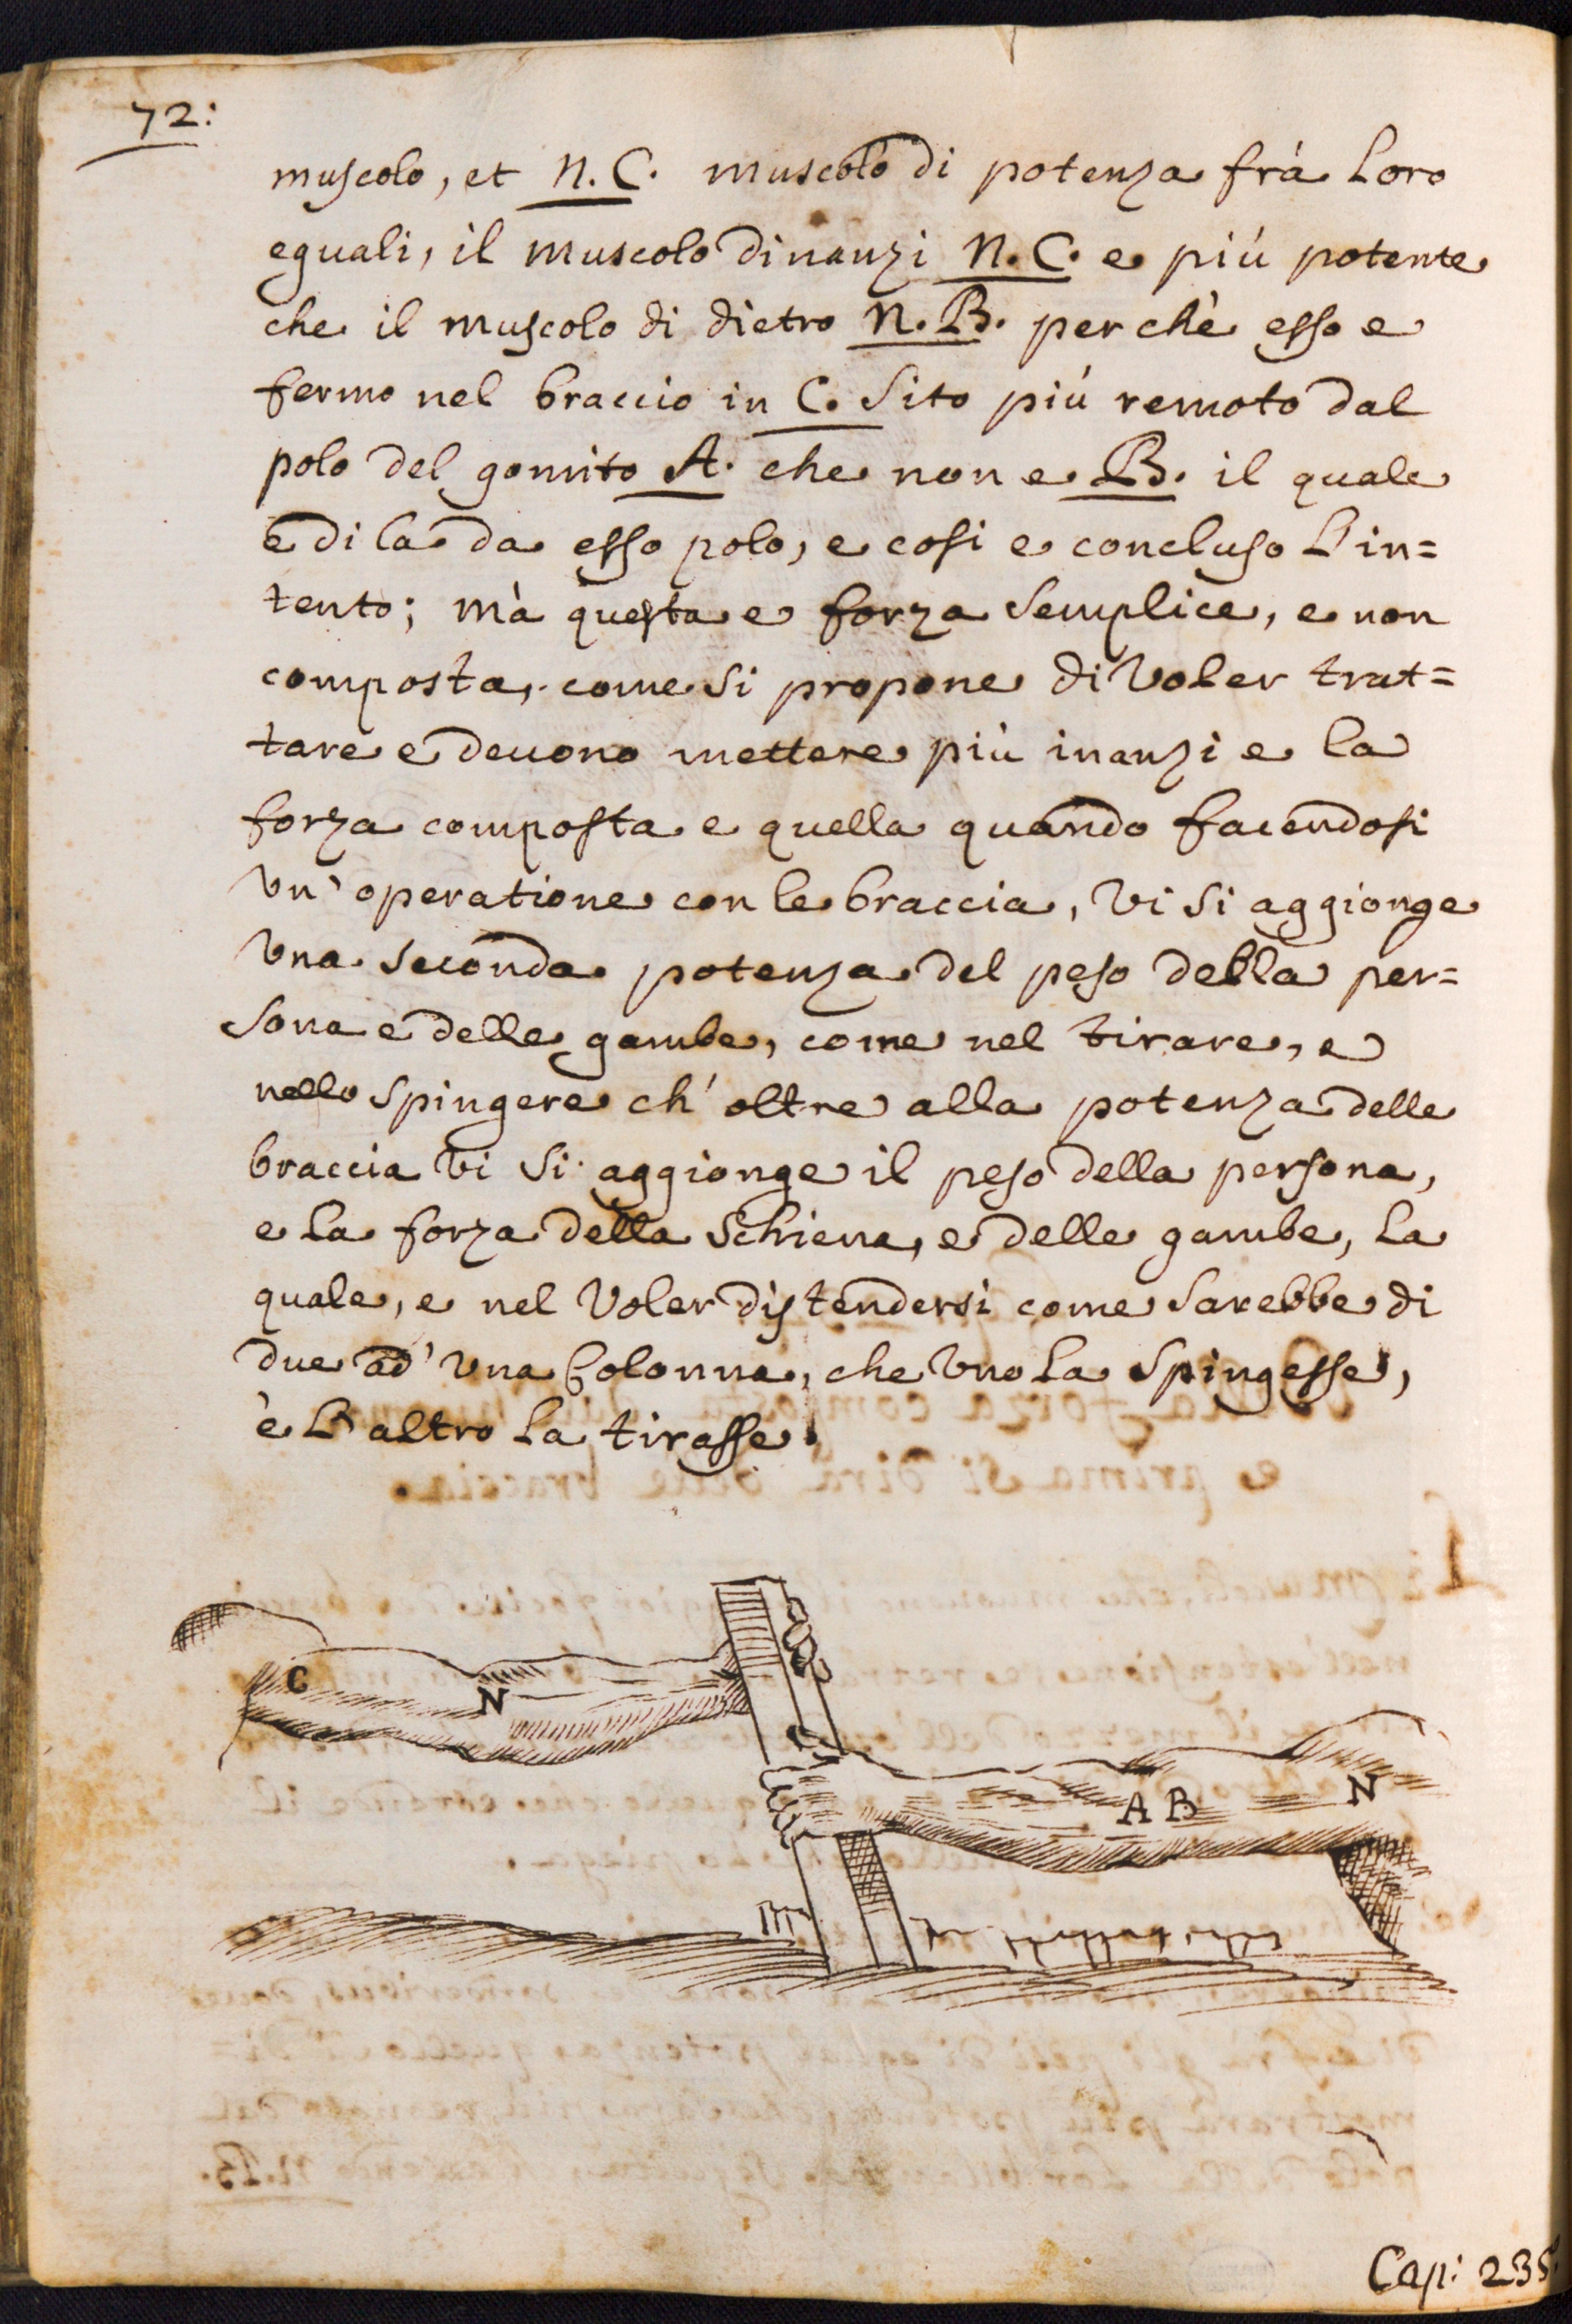 72:
muscolo, et N.C. muscolo di potenza frà loro
eguali, il muscolo dinanzi N.C. e più potente
che il muscolo di dietro N.B. perchè esso e
fermo nel braccio in C. sito più remoto dal
polo del gomito A. che non e B. il quale
e di la da esso polo, e cosi e concluso l'in=
tento; mà questa e forza semplice, e non
composta, come si propone di voler trat=
tare e devono mettere più inanzi e la
forza composta e quella quando facendosi
un' operatione con le braccia, vi si aggionge
una seconda potenza del peso della per=
sona e delle gambe, come nel tirare, e
nello spingere ch' oltre alla potenza delle
braccia vi si aggionge il peso della persona,
e la forza della schiena, e delle gambe, la
quale, e nel voler distendersi come sarebbe di
due ad' una Colonna, che uno la spingesse,
è l'altro la tirasse.
C N
A B N
Cap: 235.